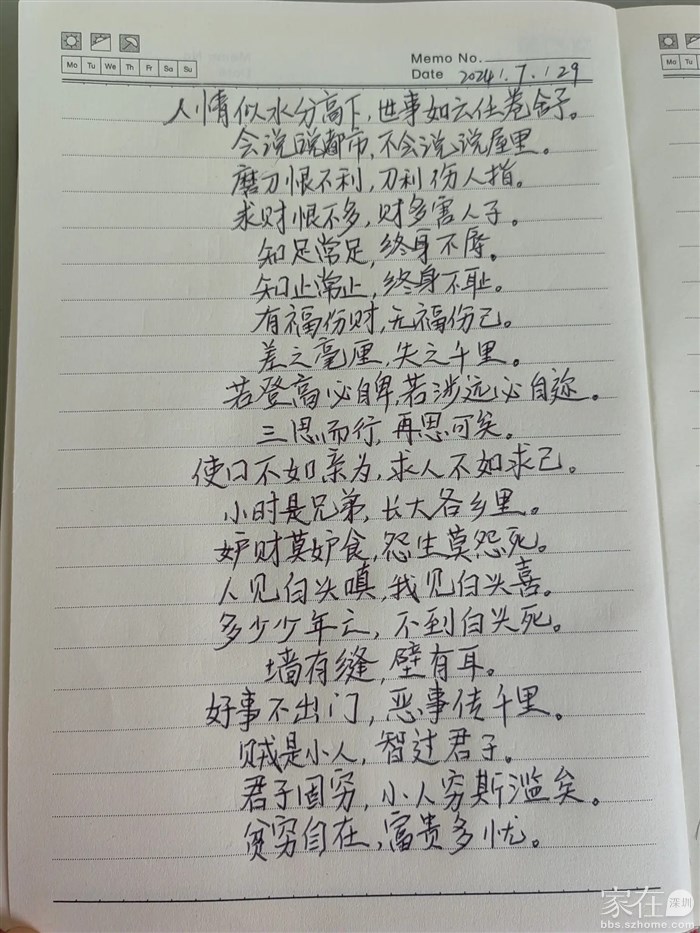 Memo No.
Mo Tu We Th Fr Sa Su
Date 2024.7.29
人情似水分高下，世事如云任卷舒。
会说说都市，不会说说屋里。
磨刀恨不利，刀利伤人指。
求财恨不多，财多害人子。
知足常足，终身不辱。
知止常止，终身不耻。
有福伤财，无福伤己。
差之毫厘，失之千里。
若登高必自卑，若涉远必自迩。
三思而行，再思可矣。
使口不如亲为，求人不如求己。
小时是兄弟，长大各乡里。
妒财莫妒食，怨生莫怨死。
人见白头嗔，我见白头喜。
多少少年亡，不到白头死。
墙有缝，壁有耳。
好事不出门，恶事传千里。
贼是小人，智过君子。
君子固穷，小人穷斯滥矣。
贫穷自在，富贵多忧。
家在深圳
bbs.szhome.com